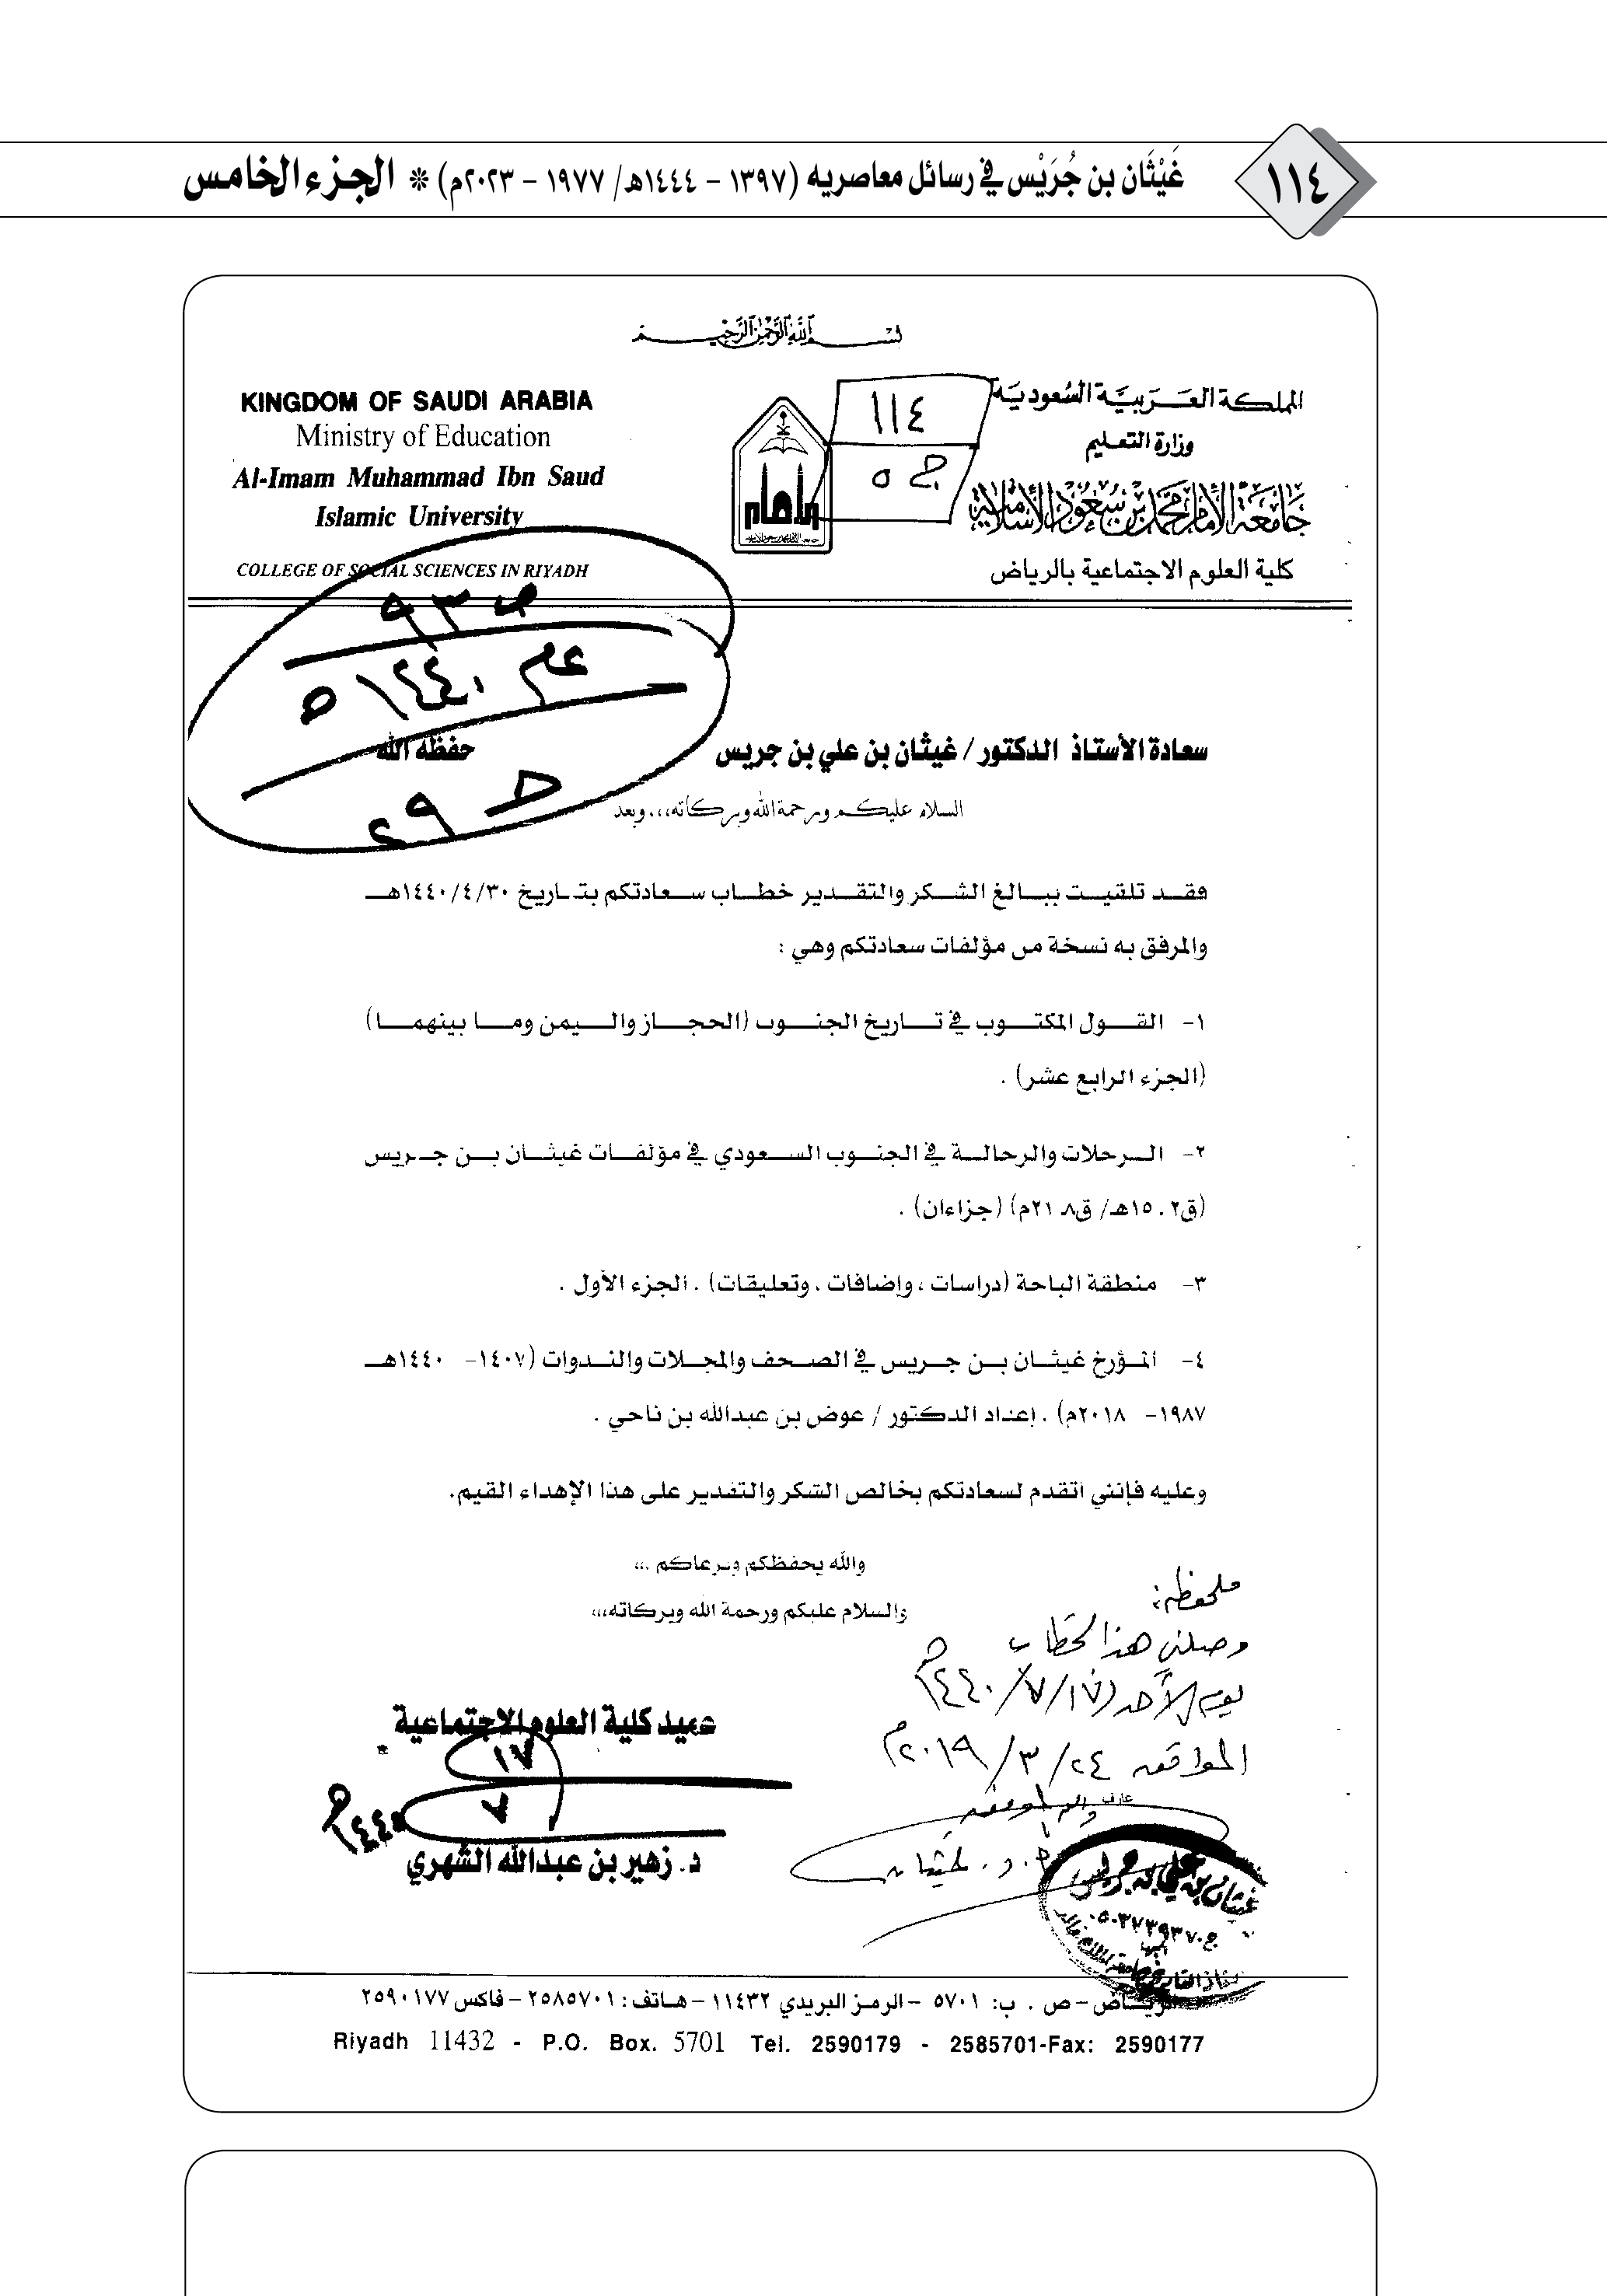 ١١٤
غَيْثَان بن جُرَيْس في رسائل معاصريه (١٣٩٧ - ١٤٤٤هـ/ ١٩٧٧ - ٢٠٢٣م) * الجزء الخامس
بسم الله الرحمن الرحيم
المملكة العربية السعودية
وزارة التعليم
جامعة الإمام محمد بن سعود الإسلامية
كلية العلوم الاجتماعية بالرياض
١١٤
ج ٥
KINGDOM OF SAUDI ARABIA
Ministry of Education
Al-Imam Muhammad Ibn Saud
Islamic University
COLLEGE OF SOCIAL SCIENCES IN RIYADH
ص ٩٣
١٤٤٠هـ
سعادة الأستاذ الدكتور / غيثان بن علي بن جريس حفظه الله
السلام عليكم ورحمة الله وبركاته،،، وبعد
فقد تلقيت ببالغ الشكر والتقدير خطاب سعادتكم بتاريخ ١٤٤٠/٤/٣٠هـ
والمرفق به نسخة من مؤلفات سعادتكم وهي :
١- القول المكتوب في تاريخ الجنوب (الحجاز واليمن وما بينهما)
(الجزء الرابع عشر) .
٢- الرحلات والرحالة في الجنوب السعودي في مؤلفات غيثان بن جريس
(ق٢ . ١٥هـ/ ق٨ ٢١م) (جزاءان) .
٣- منطقة الباحة (دراسات ، وإضافات ، وتعليقات) . الجزء الأول .
٤- المؤرخ غيثان بن جريس في الصحف والمجلات والندوات (١٤٠٧- ١٤٤٠هـ
١٩٨٧- ٢٠١٨م) . إعداد الدكتور / عوض بن عبدالله بن ناحي .
وعليه فإنني أتقدم لسعادتكم بخالص الشكر والتقدير على هذا الإهداء القيم.
والله يحفظكم ويرعاكم ،،،
والسلام عليكم ورحمة الله وبركاته،،،
ملحظة:
وصلني هذا الخطاب
يوم الأحد (١٧/٧/١٤٤٠هـ
الموافق ٢٤/٣/٢٠١٩م
أ.د. غيثان
عميد كلية العلوم الاجتماعية
١٧
٧
١٤٤٠هـ
د. زهير بن عبدالله الشهري
غيثان بن علي بن جريس
الرياض – ص . ب: ٥٧٠١ – الرمز البريدي ١١٤٣٢ – هاتف : ٢٥٨٥٧٠١ – فاكس ٢٥٩٠١٧٧
Riyadh 11432 - P.O. Box. 5701 Tel. 2590179 - 2585701-Fax: 2590177